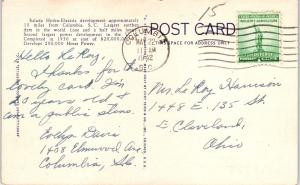 15
Saluda Hydro-Electric development approximately
10 miles from Columbia, S.C. Largest earthen
dam in the world (one and a half miles
Second largest power development in the
Completed in 1930 at a cost of $20,000,000
Develops 200,000 Horse Power.
POST CARD
THIS SPACE FOR ADDRESS ONLY
COLUMBIA
MAR 22
11 AM
1942
S.C.
Hello Le Roy,
Thanks for the
lovely card. I'm
20 years old &
am a public steno.
Evelyn Davis
1408 Elmwood Ave
Columbia, So.
Mr. Le Roy Harrison
1448 E. 135 St.
E. Cleveland,
Ohio